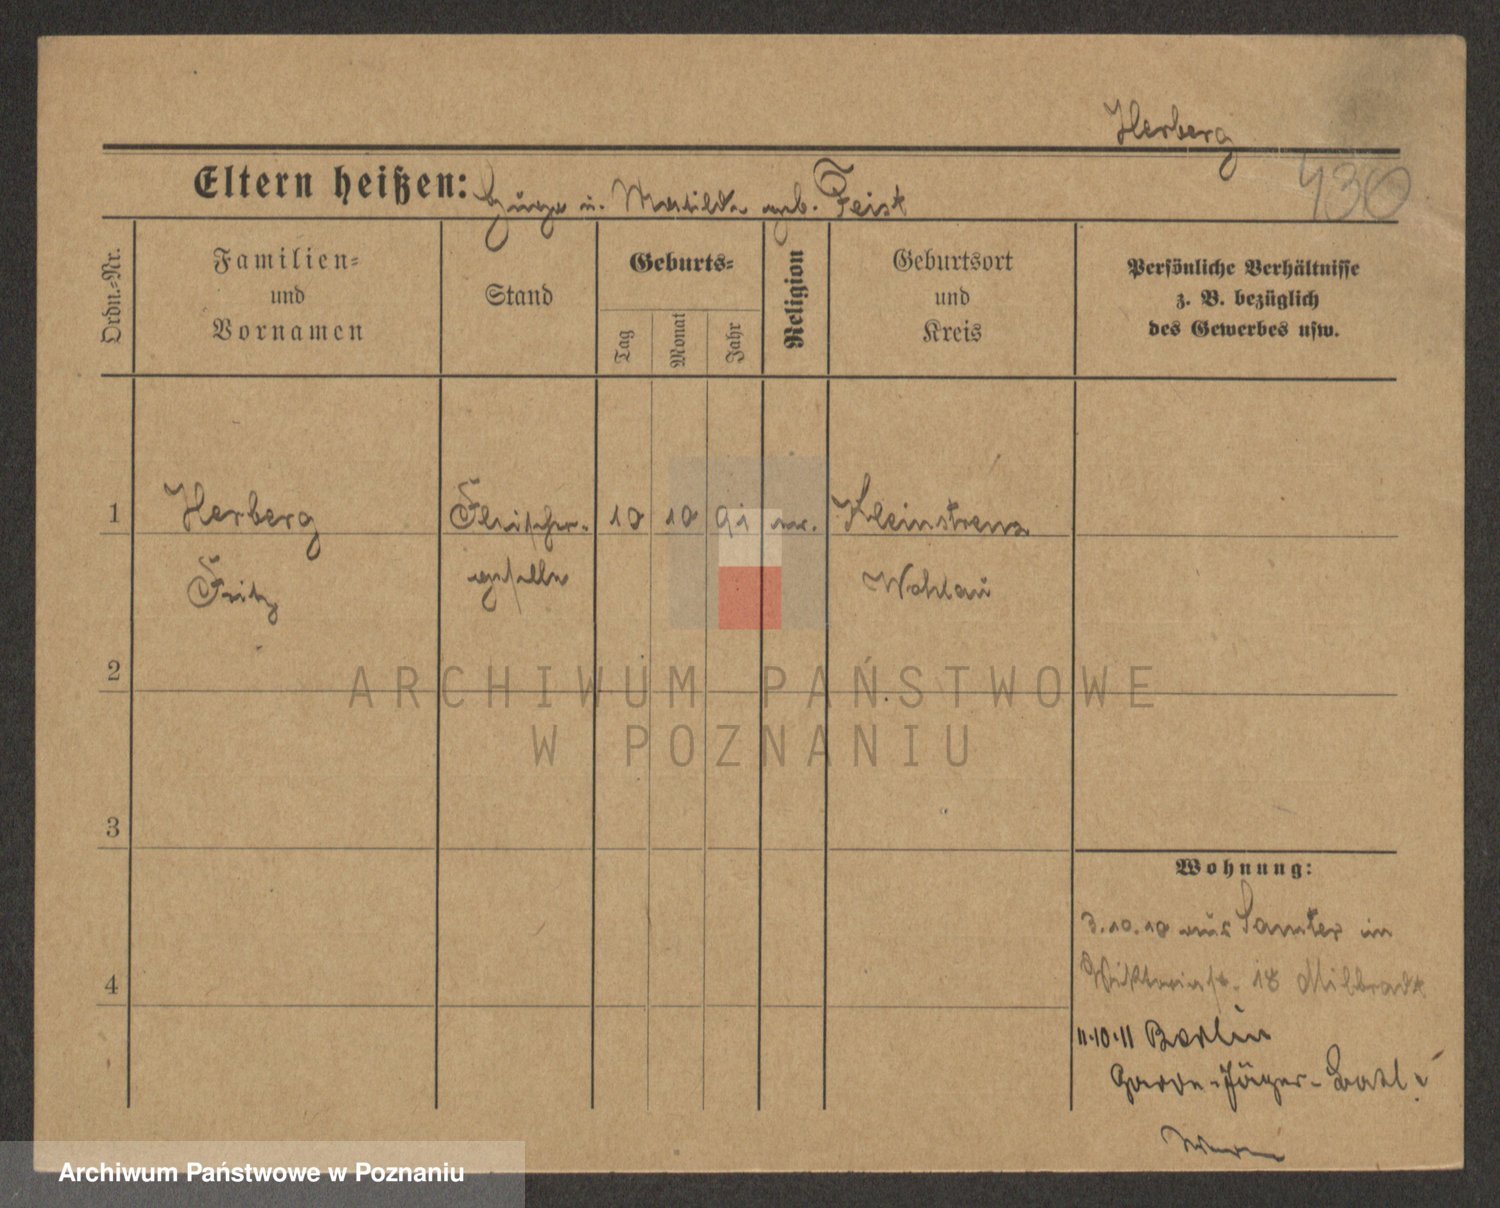 Herberg
430
Eltern heißen: u. Matilda geb. Feist
Ordn.-Nr.
Familien-
und
Vornamen
Stand
Geburts-
Tag
Monat
Jahr
Religion
Geburtsort
und
Kreis
Persönliche Verhältnisse
z. B. bezüglich
des Gewerbes usw.
1 Herberg Fleischer- 10 10 91 ev. Kleinstrenz
Fritz geselle Wohlau
2
ARCHIWUM PAŃSTWOWE
W POZNANIU
3
Wohnung:
3.10.10 aus Samter in
Viktoriast. 18 Milbradt
4
11.10.11 Berlin
Garde-Jäger-Batl.
Archiwum Państwowe w Poznaniu